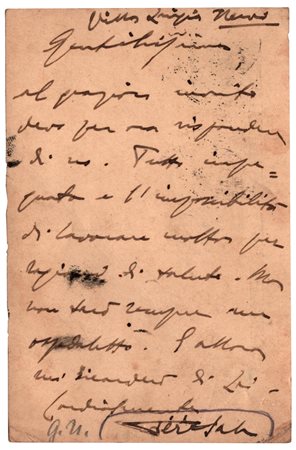 Villa Luigia Nervi
Gentilissimo,
al grazioso invito
devo per ora rispondere
di no. Tutto impe-
gnato e l'impossibilità
di lavorare molto per
ragioni di salute. Ma
non sarò sempre un
E allora
mi ricorderò di Lei
Cordialmente
G. N.